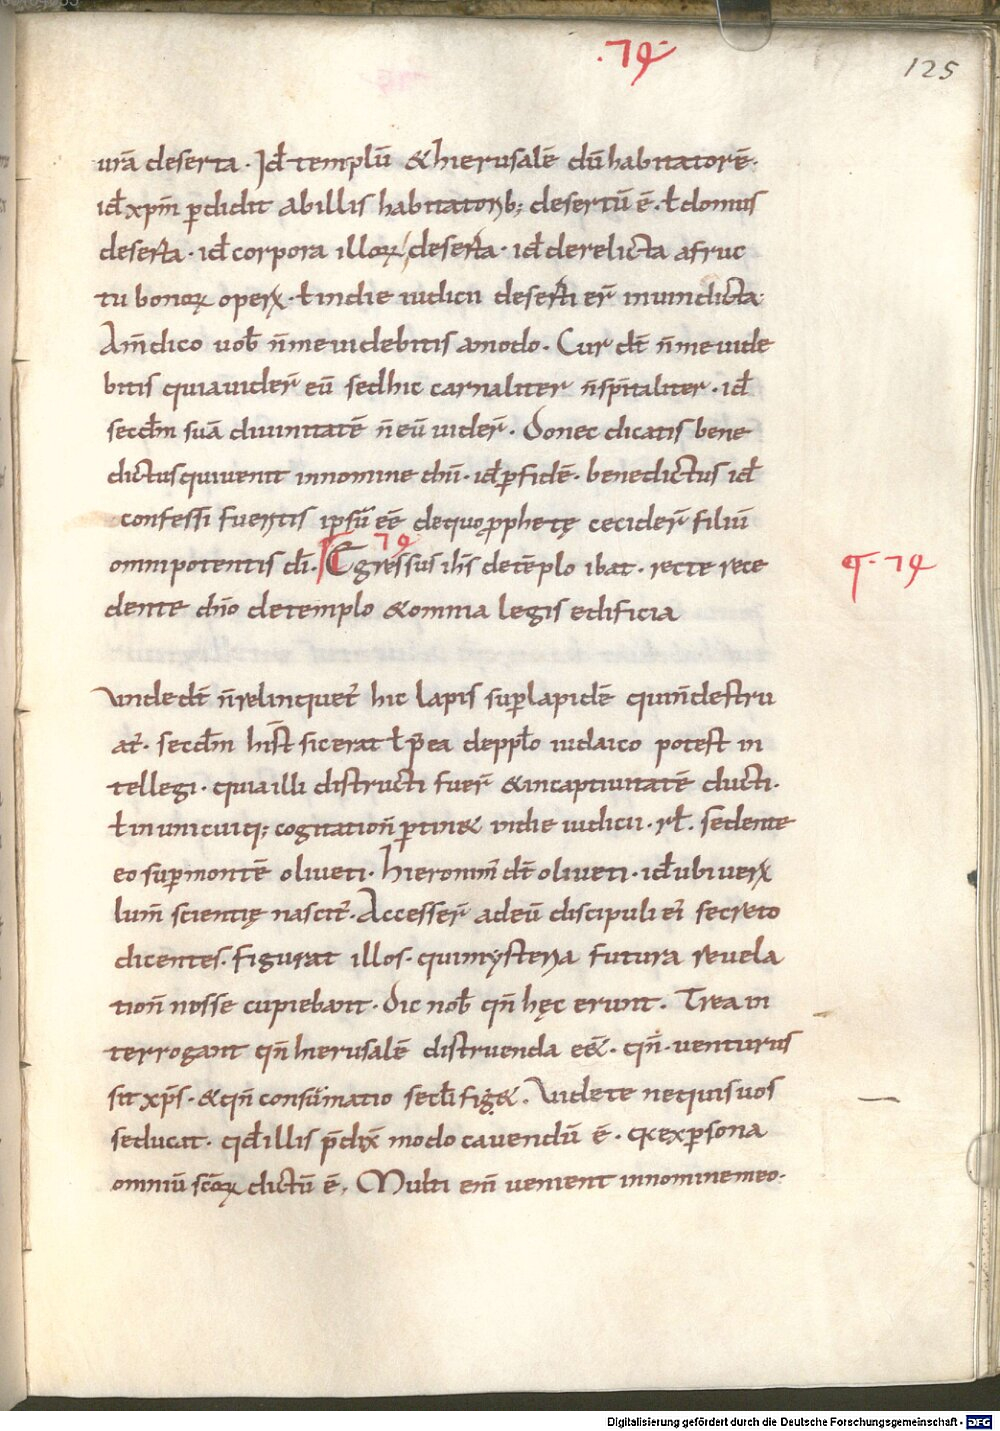 .79.
125
urā deserta. Id̄ templū &hierusalē dūhabitatorē.
id̄ xpm̄ p̄didit abillis habitatorib; desertū ē. ł domus
deserta. id̄ corpora illoꝝ deserta. id̄ derelicta afruc
tu bonoꝝ operꝝ. ł indie iudicii deserti er̄ inuindicta.
Am̄dico uob̄ n̄meuidebitis amodo. Cur dt̄ n̄me uide
bitis quiauider̄ eū sedhic carnaliter n̄sp̄italiter. id̄
secd̄m suā diuinitatē n̄eū uider̄. Donec dicatis bene
dictusquiuenit innomine dn̄i. id̄ p̄fidē. benedictus id̄
confessi fuertis ipsū eē dequo ꝓphetę cecider̄ filiū
omnipotentis dī. Egressus ih̄s detēplo ibat. recte rece
79
ꝗ. 79
dente dn̄o detemplo &omnia legis edificia
Unde dt̄ n̄relinquet̄ hic lapis sup̄lapidē quin̄destru
at̄. secd̄m hist̄ sicerat ł p̄ea depplo iudaico potest in
tellegi. quiailli distructi fuer̄ &incaptiuitatē ducti.
ł inunicuiq; cogitation̄ p̄tin& indie iudicii. rł. sedente
eo sup̄montē oliueti. hieronim̄ dt̄ oliueti. id̄ubi uerꝝ
lum̄ scientię nascit̄. Accesser̄ adeū discipuli ei secreto
dicentes. figurat illos. quimysteria futura reuela
tion̄ nosse cupiebant. dic nob̄ qn̄ hęc erunt. Trea in
terrogant qn̄ hierusalē distruenda eē&. qn̄. uenturus
sit xp̄s. &qn̄ consūmatio secl̄i fig&. Uidete nequisuos
seducat. qd̄ illis p̄dix̄ modo cauendū ē. qꝛ exp̄sona
omniū scōꝝ dictū ē. Multi em̄ uenient innominemeo.
Digitalisierung gefördert durch die Deutsche Forschungsgemeinschaft - DFG